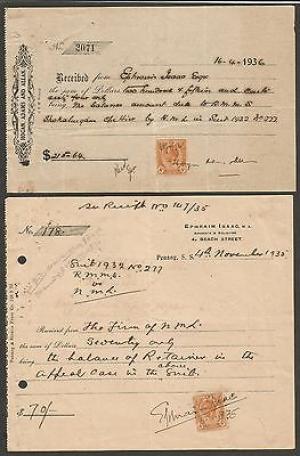 HOGAN, ADAMS AND ALLAN,
No. 2071
16-4-1936
Received from Ephraim Isaac Esqr
the sum of Dollars two hundred & fifteen and cents
sixty four only
being the balance amount due to R.M.M.S.
by N.M.L. in Suit 1932 No 277
$ 215.64
See Receipt No 167/35
EPHRAIM ISAAC, M.A.
ADVOCATE & SOLICITOR
4, BEACH STREET.
No. 178
Penang, S. S. 4th November 1935
Suit 1932 No 277
R.M.M.S.
vs
N.M.L.
Received from The Firm of N.M.L.
the sum of Dollars Seventy only
being the balance of Retainer in the
Appeal Case in the above Suit.
$ 70/-
Ephraim Isaac